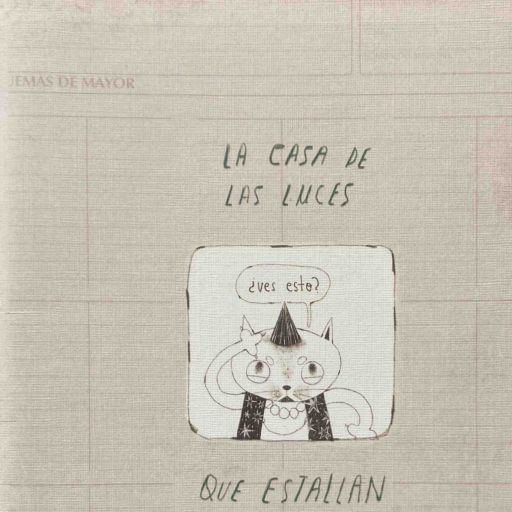 EMAS DE MAYOR
LA CASA DE
LAS LUCES
¿ves esto?
QUE ESTALLAN